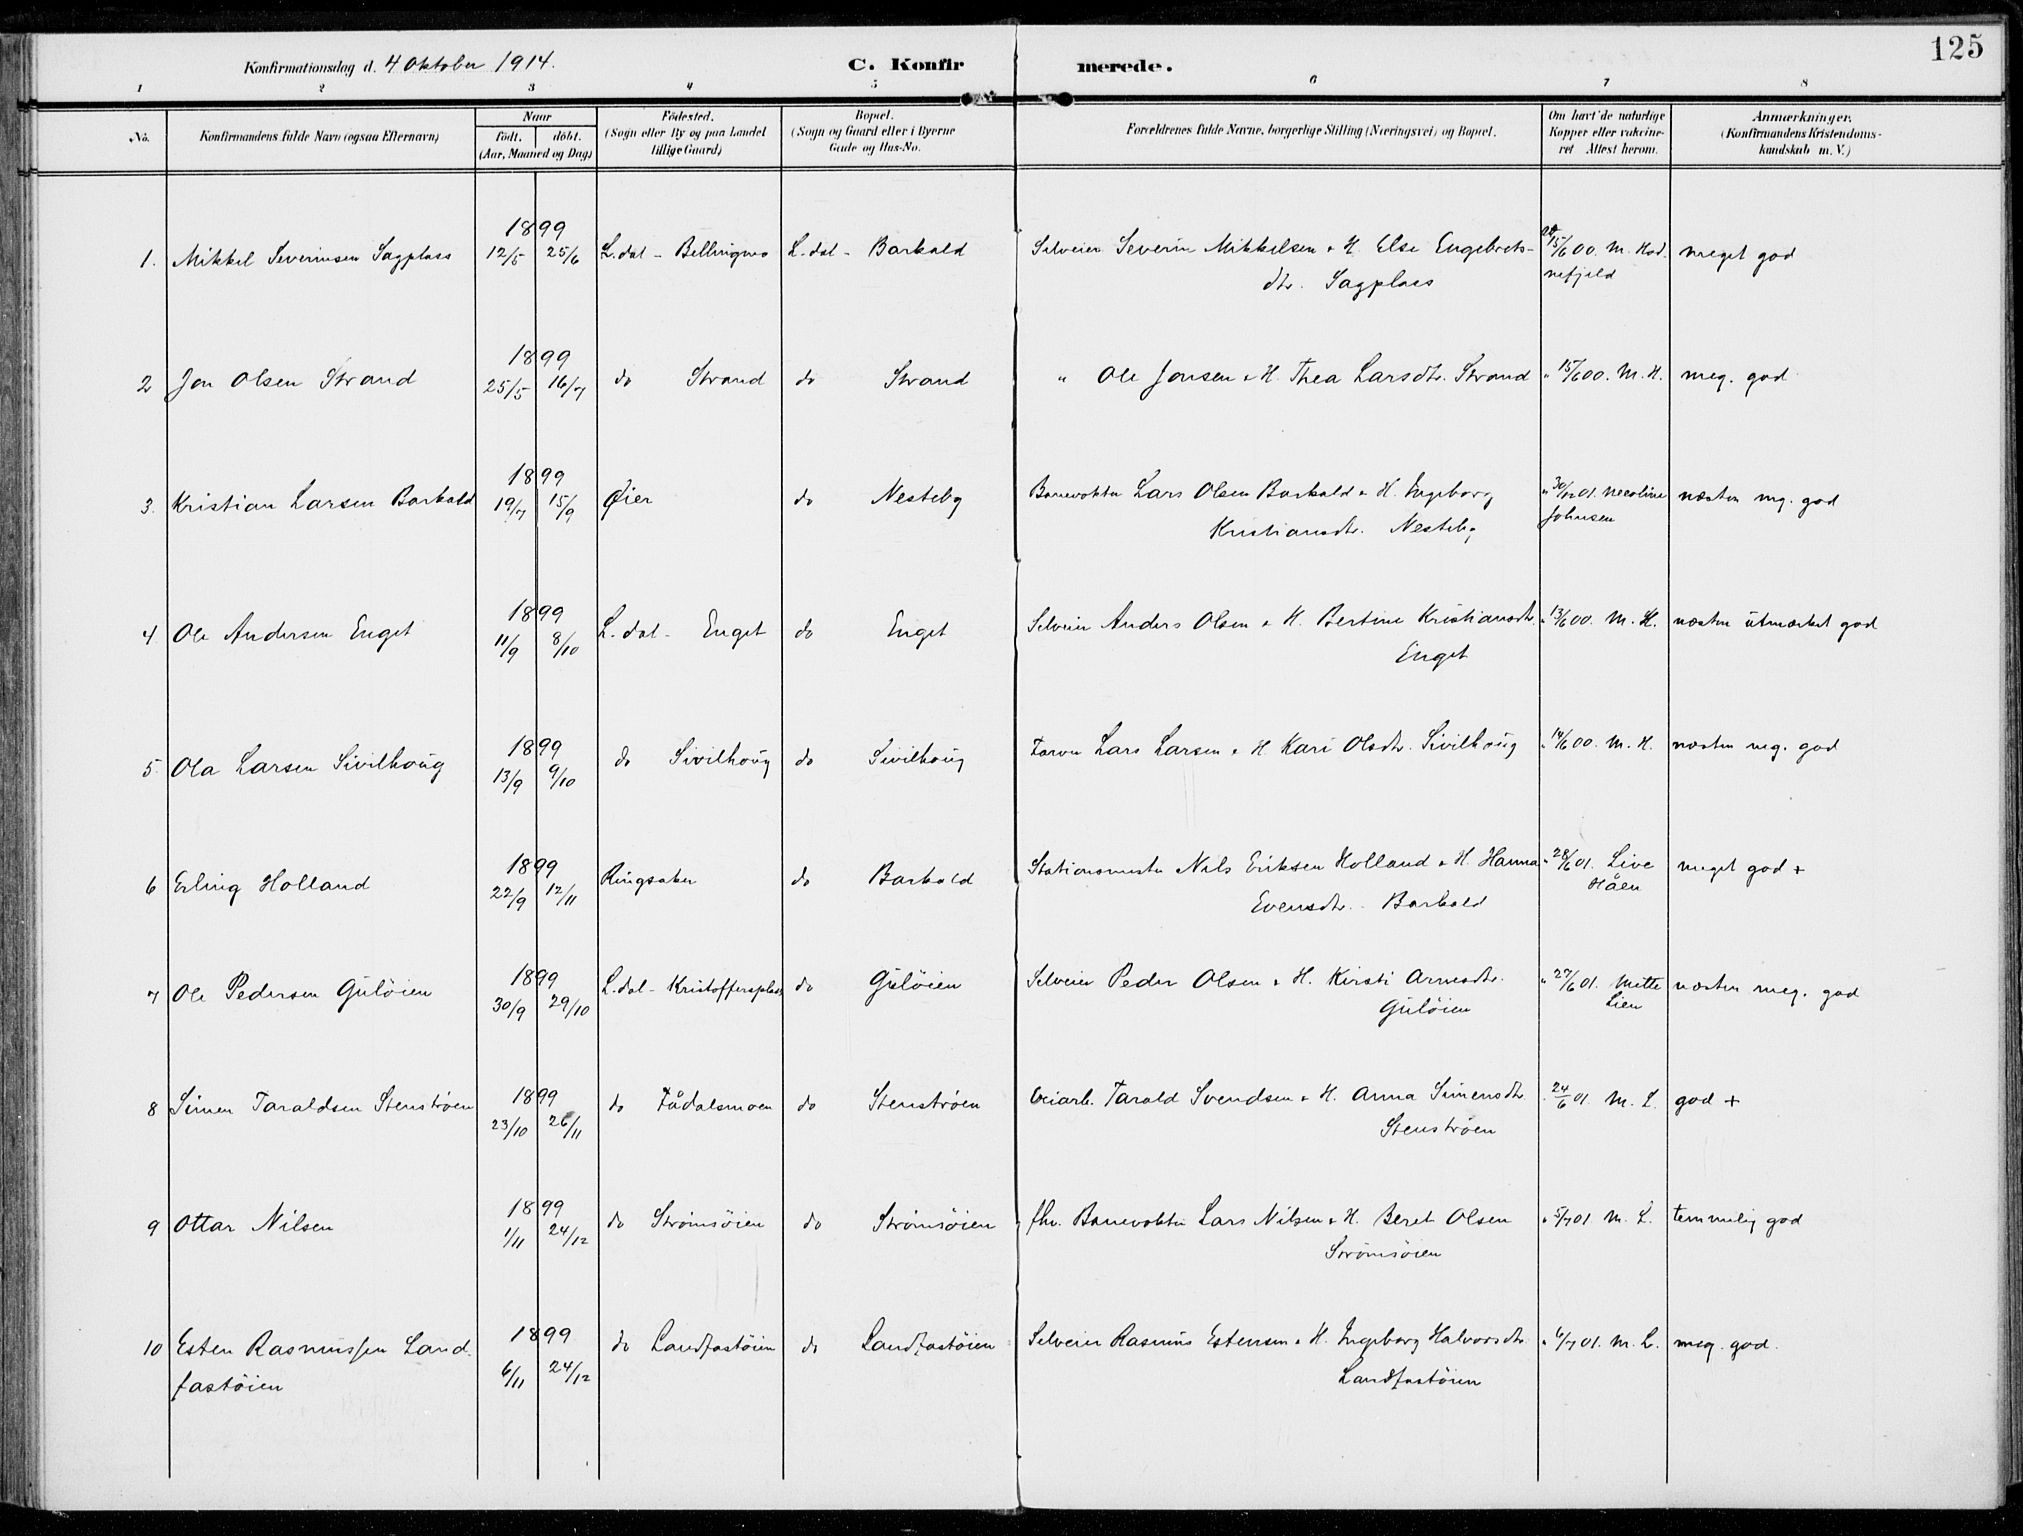 125
Konfirmationsdag d. 4 Oktober 1914.
C. Konfirmerede.
1 2 3 4 5 6 7 8
No. Konfirmandens fulde Navn (ogsaa Efternavn) Naar født. døbt. (Aar, Maaned og Dag) Fødested. (Sogn eller By og paa Landet tillige Gaard) Bopæl. (Sogn og Gaard eller i Byerne Gade og Hus-No. Forældrenes fulde Navne, borgerlige Stilling (Næringsvei) og Bopæl. Om havt de naturlige Kopper eller vakcineret. Attest herom. Anmærkninger. (Konfirmandens Kristendomskundskab m. V.)
1899
1. Mikkel Severinsen Sagplass 12/5 25/6 L.dal - Bellingmo L.dal - Barkald Selveier Severin Mikkelsen & H. Else Engebrets- 15/6 00. M. Hod. meget god
dtr. Sagplass nefjeld
1899
2 Jon Olsen Strand 25/5 16/7 do Strand do Strand " Ole Jonsen & H. Thea Larsdtr. Strand " 15/6 00. M. H. meg. god
1899
3. Kristian Larsen Barkald 19/7 15/9 Øier do Nesteby Banevokter Lars Olsen Barkald & H. Ingeborg " 30/12 01. Nicoline næsten mg. god
Kristiansdtr. Nesteby Johnsen
1899
4 Ole Andersen Enget 11/9 8/10 L.dal - Enget do Enget Selveier Anders Olsen & H. Bertine Kristiansdtr. " 13/6 00. M. H. næsten utmærket god
Enget
1899
5. Ola Larsen Sivilhoug 13/9 9/10 do Sivilhoug do Sivilhoug Farver Lars Larsen & H Kari Olsdtr. Sivilhoug " 14/6 00. M. H. næsten meg. god
1899
6 Erling Holland 22/9 12/11 Ringsaker do Barkald Stationsmester Nils Eriksen Holland & H. Hanna " 28/6 01. Live meget god +
Evensdtr. - Barkald Håen
1899
7 Ole Pedersen Guløien 30/9 29/10 L.dal - Kristoffersplass do Guløien Selveier Peder Olsen & H. Kirsti Arnesdtr. " 27/6 01. Mette næsten meg. god
Guløien Lien
1899
8 Simen Taraldsen Stenstrøen 23/10 26/11 do Fådalsmoen do Stenstrøen Veiarb. Tarald Svendsen & H. Anna Simensdtr. " 24/6 01 M. L. god +
Stenstrøen
1899
9 Ottar Nilsen 1/11 24/12 do Strømsøien do Strømsøien fhv. Banevokter Lars Nilsen & H. Beret Olsen " 5/7 01 M. L. temmelig god
Strømsøien
1899
10 Esten Rasmussen Land. 6/11 24/12 do Landfastøien do Landfastøien Selveier Rasmus Estensen & H. Ingeborg Halvorsdtr. " 4/7 01. M. L. meg. god.
fastøien Landfastøien